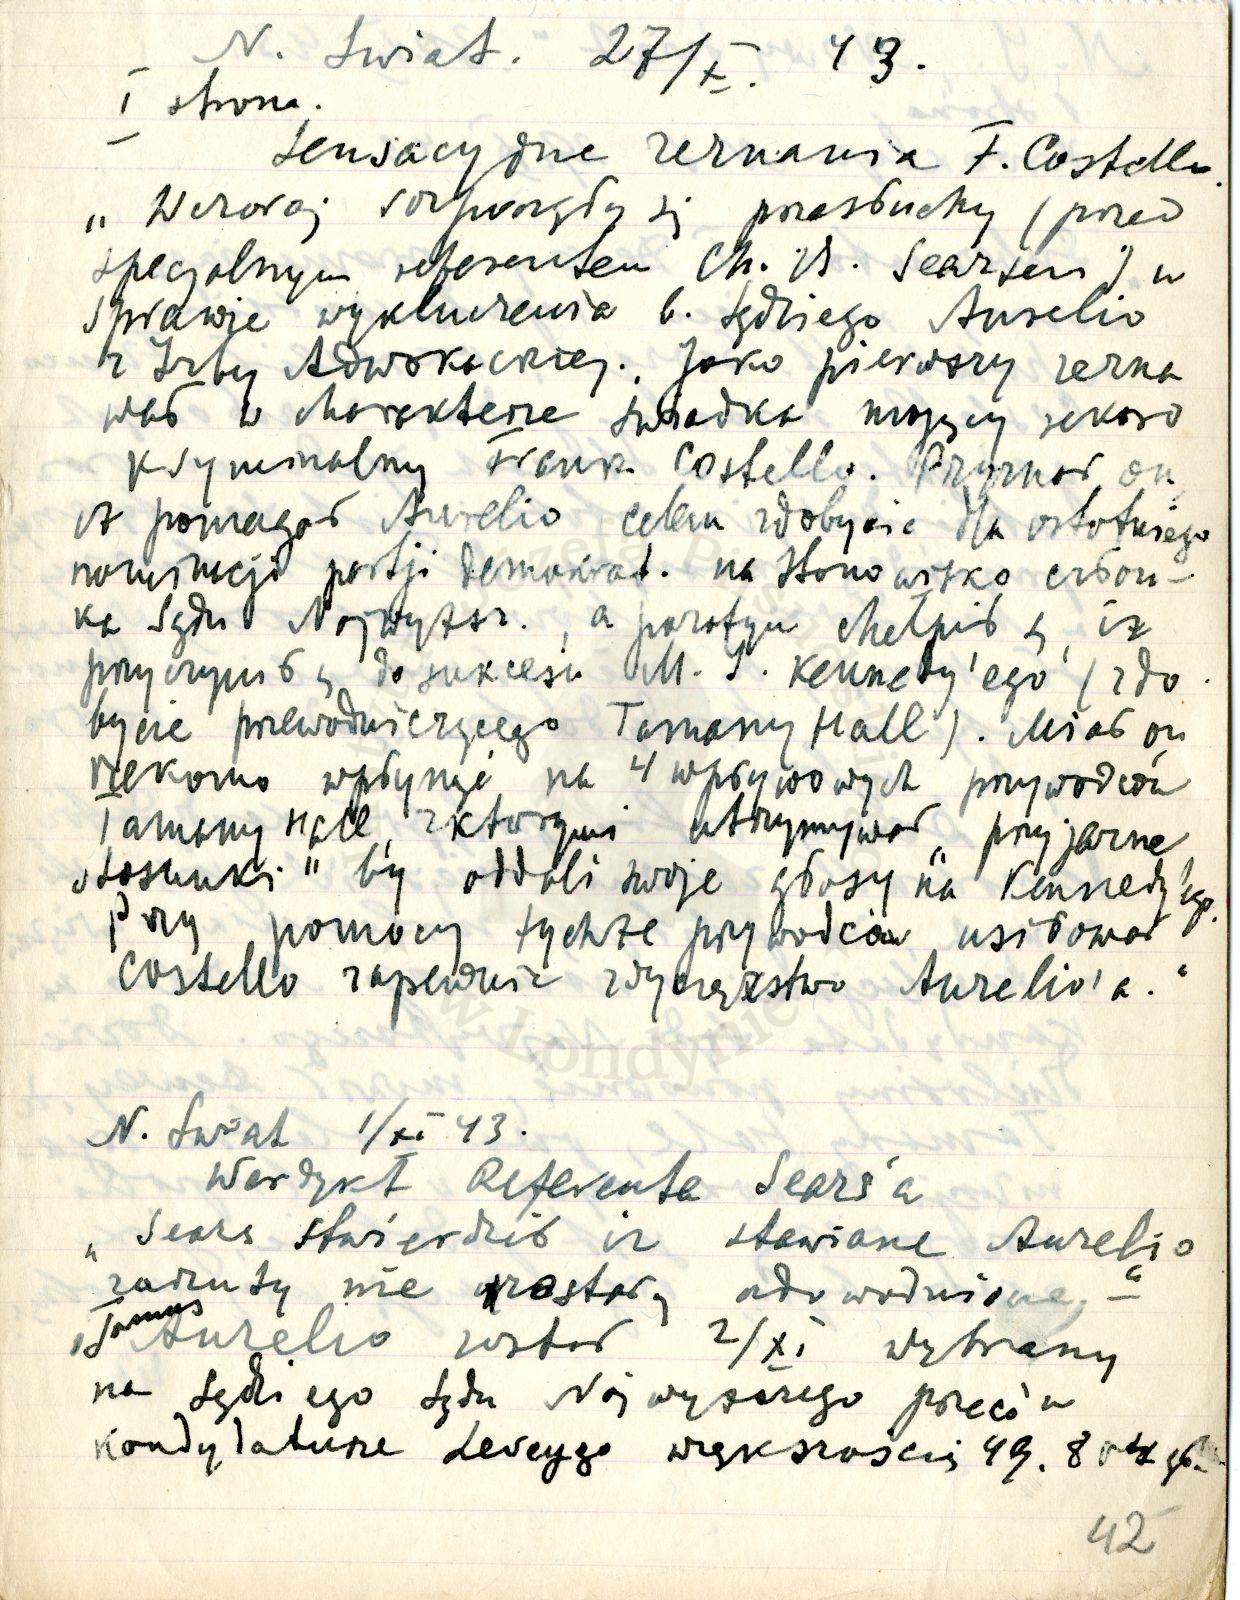 N. Świat. 27/X. 43.
I strona.
Sensacyjne zeznania F. Costello.
„Wczoraj rozpoczęły się przesłuchy (przed
specjalnym referentem Ch. B. Searsem) w
sprawie wykluczenia b. sędziego Aurelio
z Izby Adwokackiej. Jako pierwszy zezna
wał w charakterze świadka mający rekord
kryminalny Frank Costello. Przyznał on,
iż pomagał Aurelio celem zdobycia dla ostatniego
nominacji partji demokrat. na stanowisko człon-
ka Sądu Najwyższ., a pozatym chełpił się, iż
przyczynił się do sukcesu M. J. Kennedy'ego (zdo
bycie przewodniczącego Tamany Hall). Miał on
rzekomo wpłynąć na 4 wpływowych przywódców
Tamany Hall, z którymi utrzymywał „przyjazne
stosunki" by oddali swoje głosy na Kennedy'ego.
Przy pomocy tychże przywódców usiłował
Costello zapewnić zwycięstwo Aurelio'a."
N. Świat 1/XI 43.
Werdykt Referenta Sears'a
„Sears stwierdził iż stawiane Aurelio
zarzuty nie zostały udowodnione,"–
Tomas
Aurelio został 2/XI wybrany
na sędziego Sądu Najwyższego przeciw
kandydaturze Levego większością 49.8
42
w Londynie